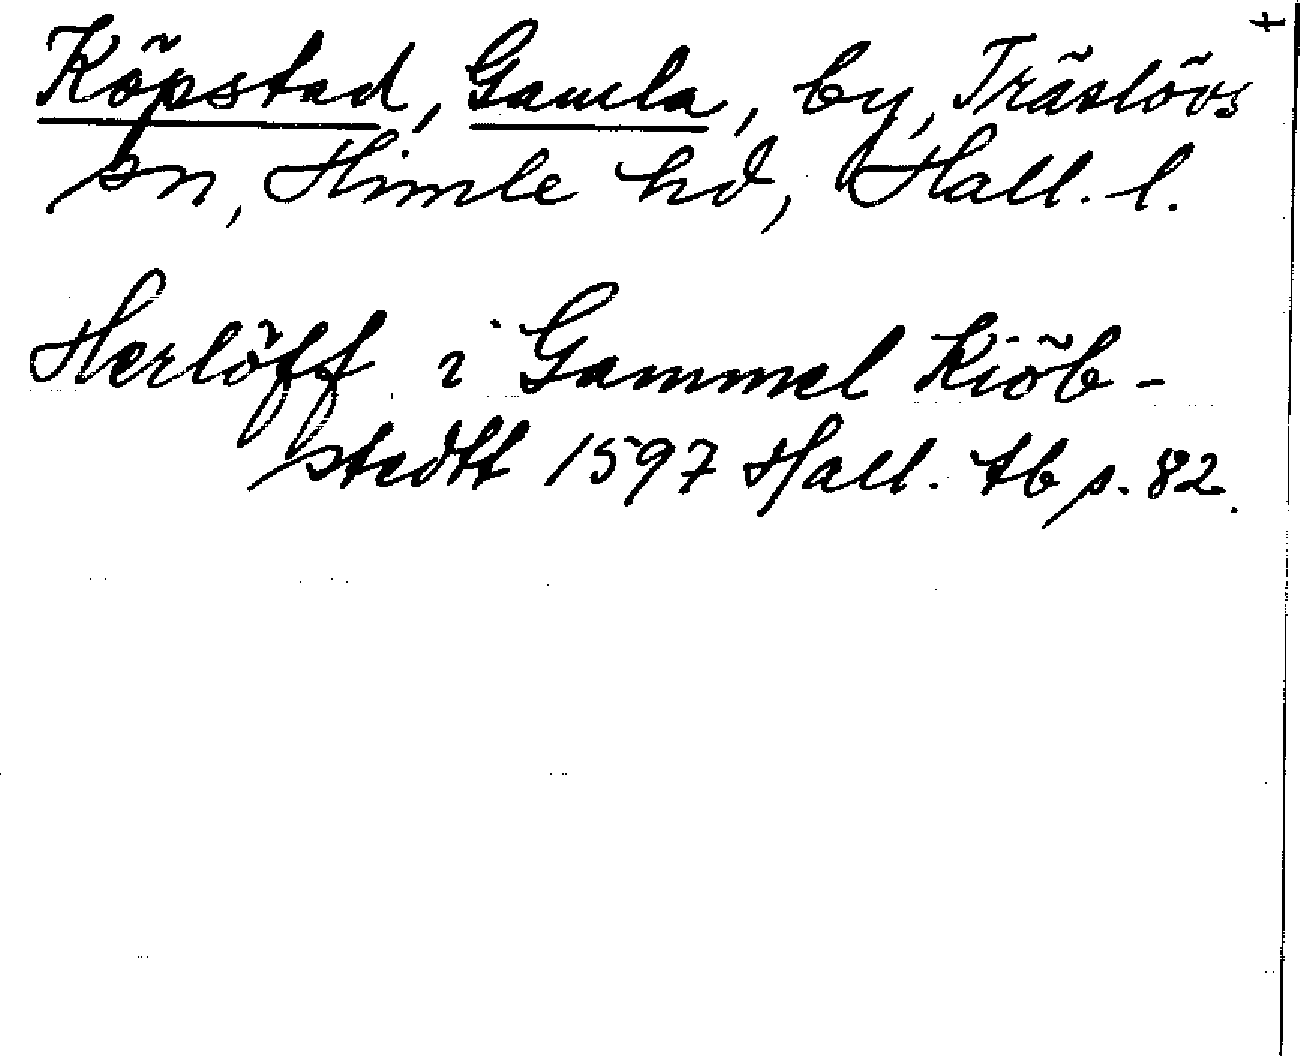 Köpstad, Gamla, by, Träslövs
sn, Himle hd, Hall. l.
Herlöff i Gammel Kiöb-
stedtt 1597 Hall. tb s. 82.